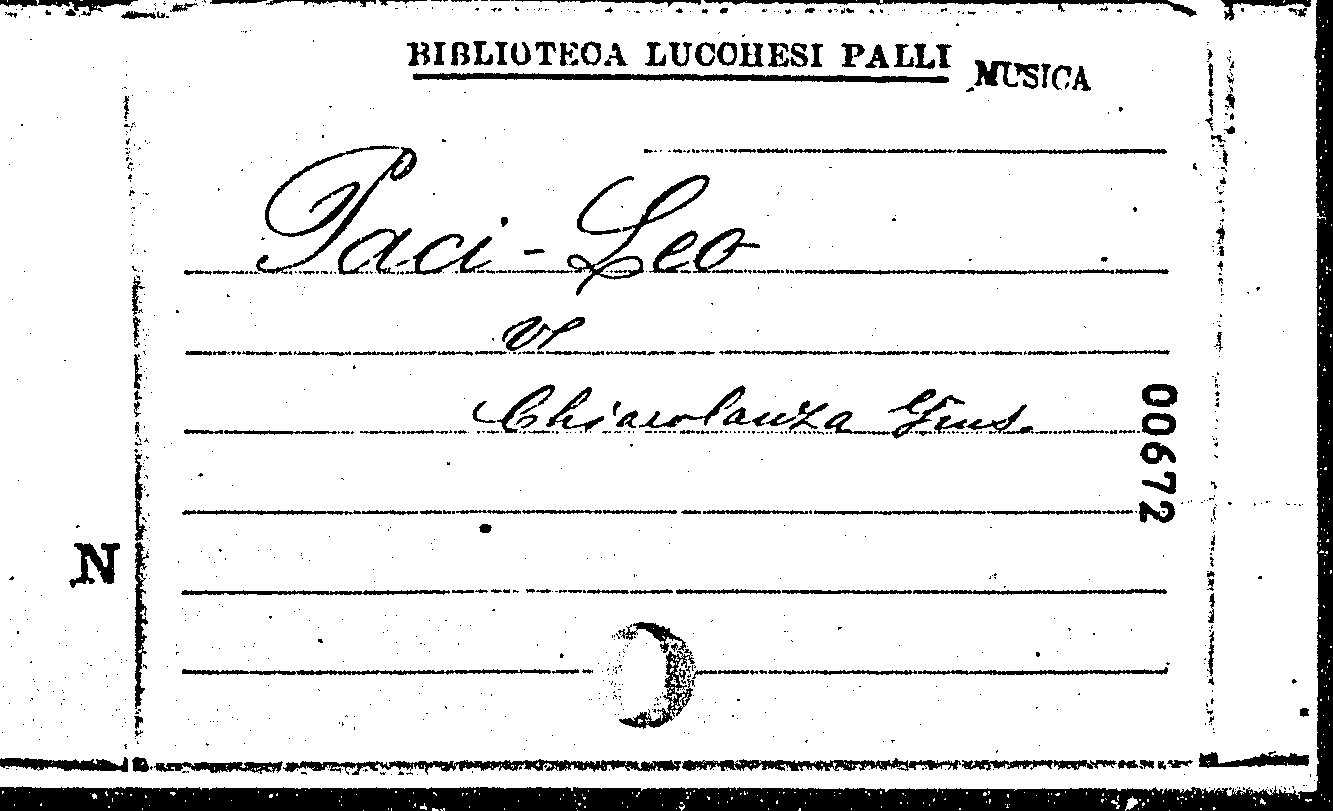 BIBLIOTECA LUCCHESI PALLI MUSICA
Paci - Leo
V.
Chiarolanza Gius.
00672
N